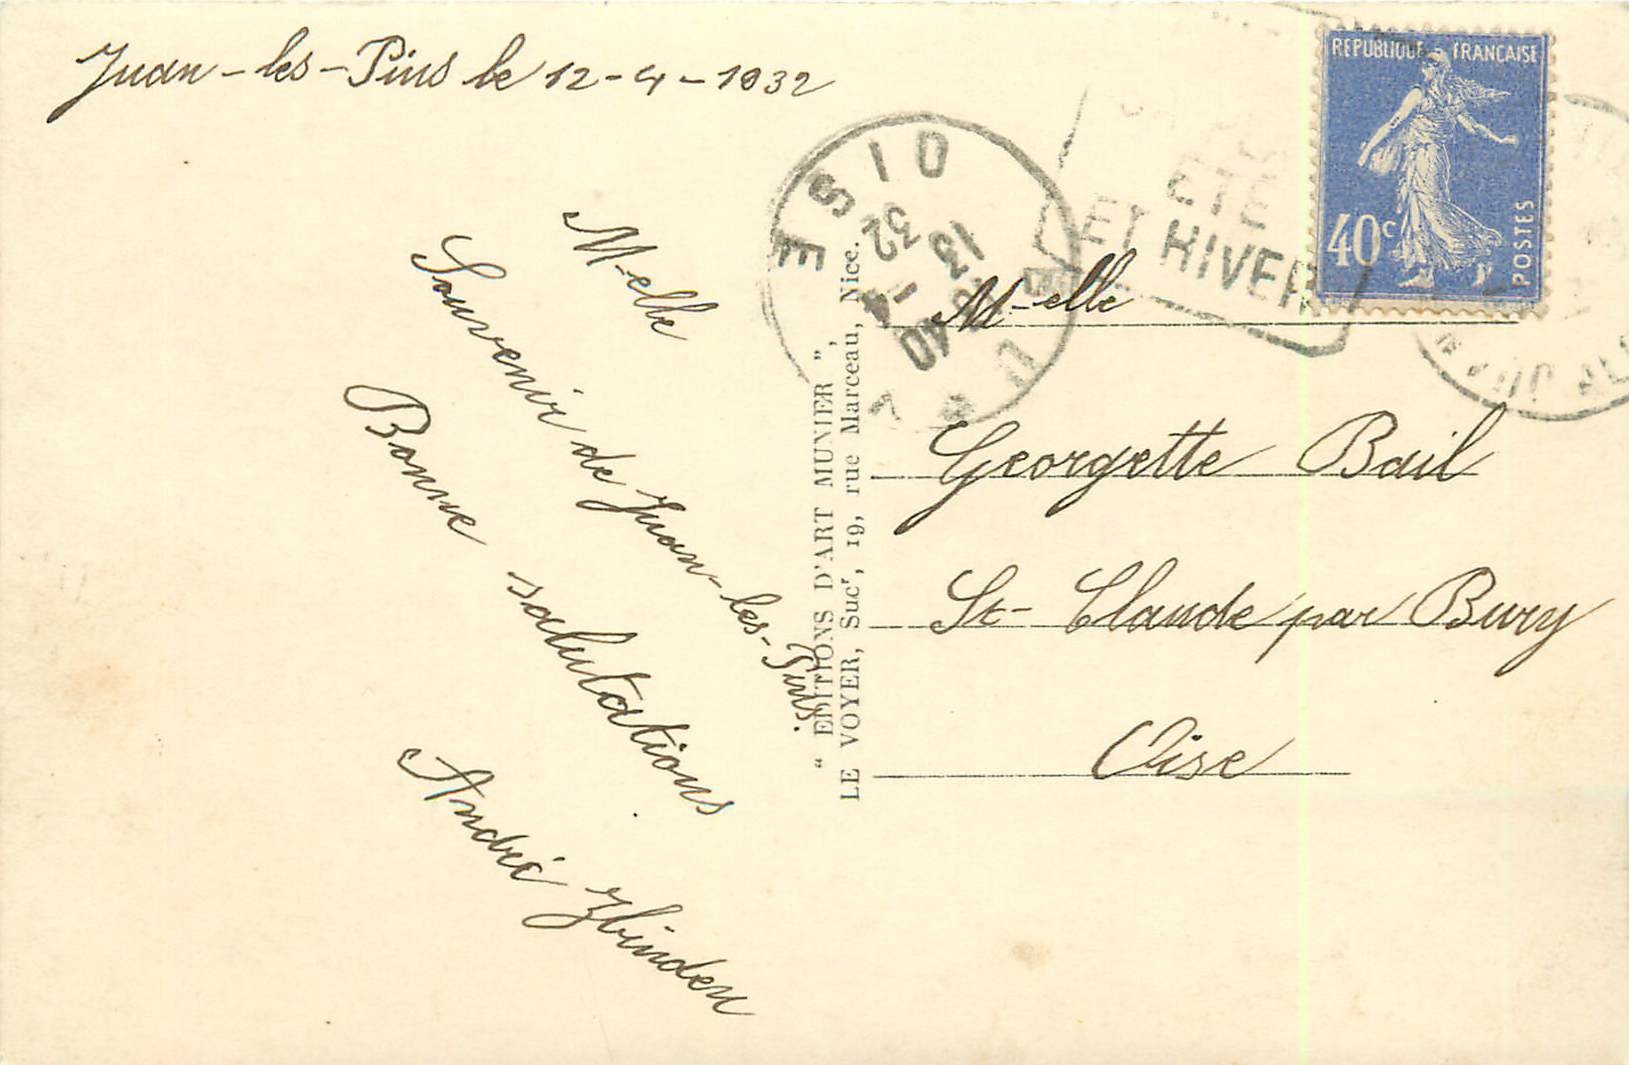 Juan-les-Pins le 12-4-1932
M-elle
Souvenir de Juan-les-Pins.
Bonne salutations
André Zbinden
" EDITIONS D'ART MUNIER ",
LE VOYER, Sucʳ, 19, rue Marceau, Nice.
OISE
13
-4
32
ÉTÉ
ET HIVER
REPUBLIQUE FRANÇAISE
40c
POSTES
M-elle
Georgette Bail
St-Claude par Bury
Oise